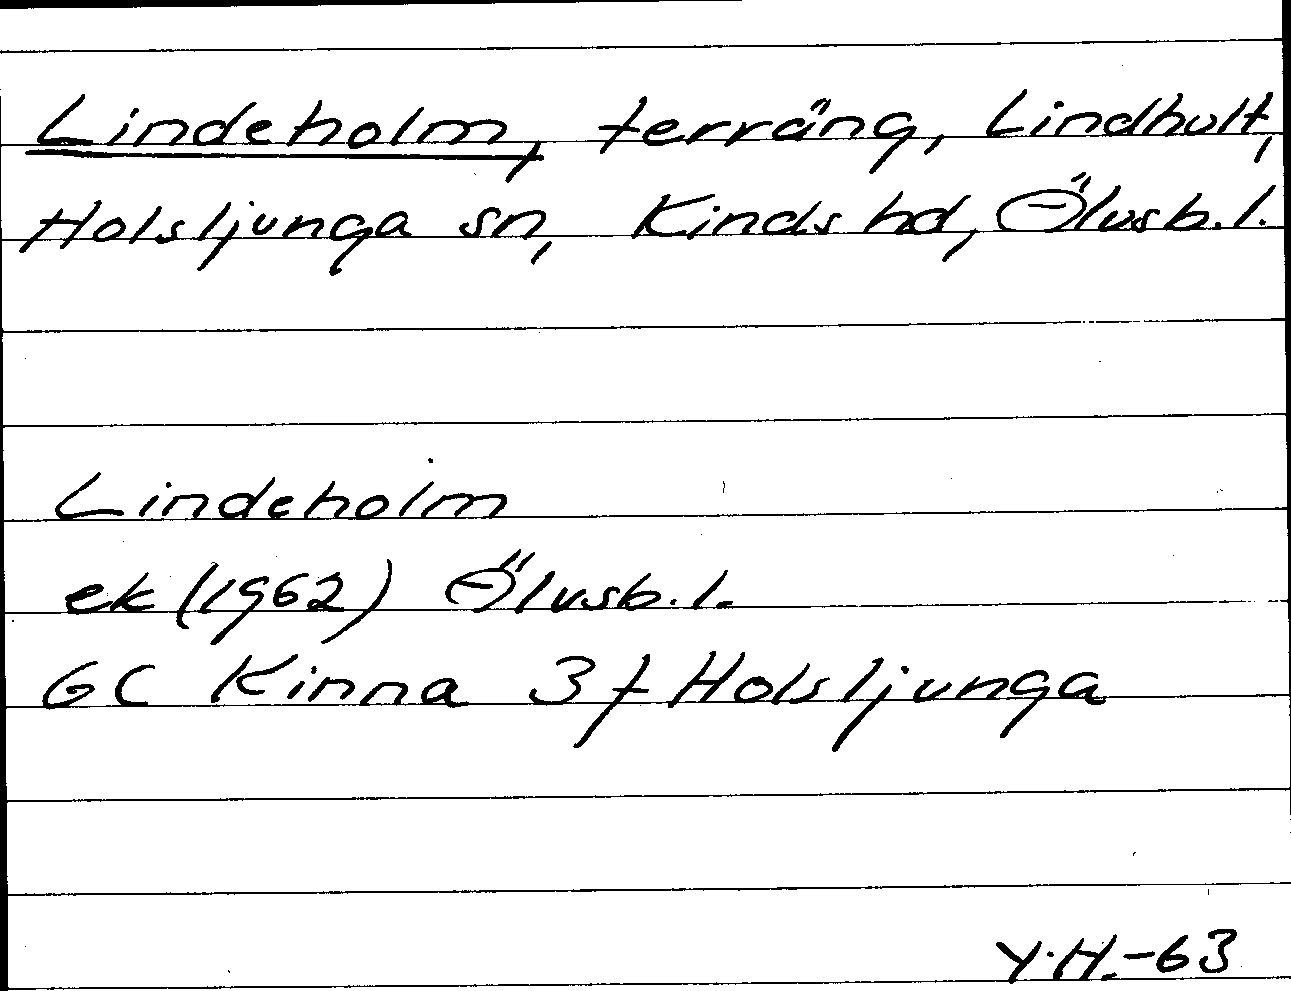 Lindeholm, terräng, Lindhult,
Holsljunga sn, Kinds hd, Älvsb. l.
Lindeholm
ek (1962) Älvsb. l.
GC Kinna 3 f Holsljunga
Y.H.-63